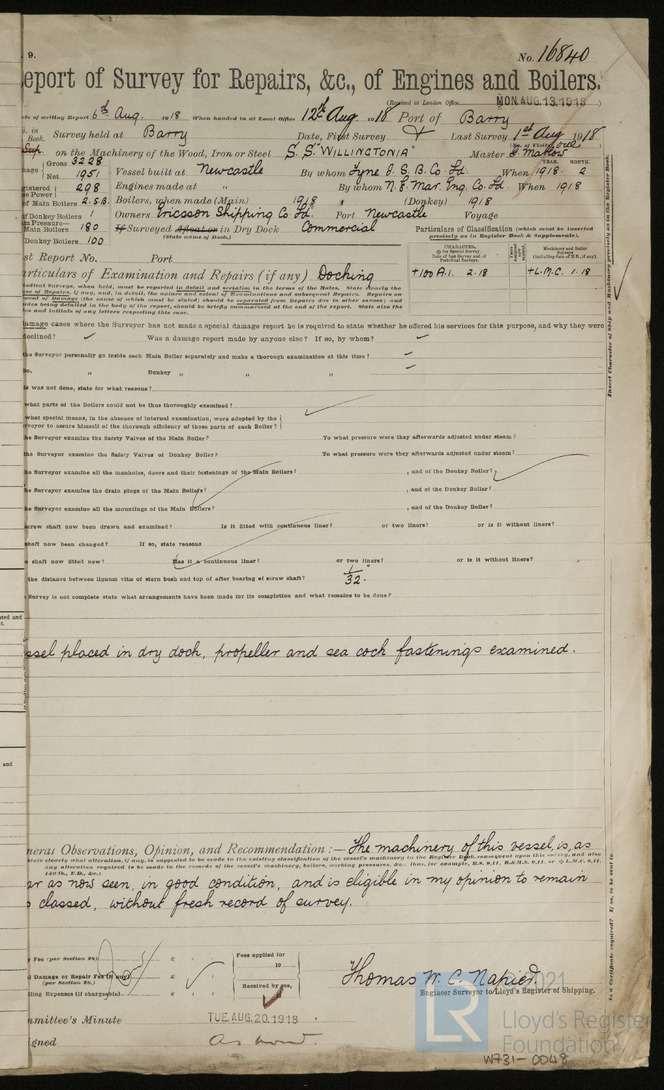 9.
No. 16840
eport of Survey for Repairs, &c., of Engines and Boilers.
(Received at London Office MON. AUG. 13. 1918)
te of writing Report 6th Aug. 1918 When handed in at Local Office 12th Aug 1918 Port of Barry
Book. Survey held at Barry Date, First Survey Last Survey 1st Aug 1918
on the Machinery of the Wood, Iron or Steel S.S. "WILLINGTONIA" Master
Gross 3228
Net 1951 Vessel built at Newcastle By whom Tyne I. S. B. Co. Ld. When 1918. 2
YEAR. MONTH.
gistered 298 Engines made at " By whom N. E. Mar. Eng. Co. Ld. When 1918
of Main Boilers 2.S.B. Boilers, when made (Main) 1918 (Donkey) 1918
of Donkey Boilers 1 Owners Ericsson Shipping Co Ld. Port Newcastle Voyage
Main Boilers 180 If Surveyed Afloat or in Dry Dock Commercial
(State name of Dock.)
Donkey Boilers 100
Particulars of Classification (which must be inserted
precisely as in Register Book & Supplements).
CHARACTER.
+100 A.1. 2.18 +L.M.C. 1.18
st Report No. Port
articulars of Examination and Repairs (if any) Docking
amage cases where the Surveyor has not made a special damage report he is required to state whether he offered his services for this purpose, and why they were
eclined? Was a damage report made by anyone else? If so, by whom?
he Surveyor personally go inside each Main Boiler separately and make a thorough examination at this time?
o. " Donkey " " "
s was not done, state for what reasons?
what parts of the Boilers could not be thus thoroughly examined?
what special means, in the absence of internal examination, were adopted by the
veyor to assure himself of the thorough efficiency of those parts of each Boiler?
he Surveyor examine the Safety Valves of the Main Boiler? To what pressure were they afterwards adjusted under steam?
he Surveyor examine the Safety Valves of Donkey Boiler? To what pressure were they afterwards adjusted under steam?
he Surveyor examine all the manholes, doors and their fastenings of the Main Boilers? , and of the Donkey Boiler?
he Surveyor examine the drain plugs of the Main Boilers? , and of the Donkey Boiler?
he Surveyor examine all the mountings of the Main Boilers? , and of the Donkey Boiler?
crew shaft now been drawn and examined? Is it fitted with continuous liner? or two liners? or is it without liners?
shaft now been changed? If so, state reasons
e shaft now fitted new? Has it a continuous liner? or two liners? or is it without liners?
the distance between lignum vitæ of stern bush and top of after bearing of screw shaft? 1/32"
Survey is not complete state what arrangements have been made for its completion and what remains to be done?
ssel placed in dry dock, propeller and sea cock fastenings examined.
neral Observations, Opinion, and Recommendation :— The machinery of this vessel, is, as
ar as now seen, in good condition, and is eligible in my opinion to remain
s classed, without fresh record of survey.
Fee (per Section 28) £ Fees applied for
19
l Damage or Repair Fee (if any) £
(per Section 28.)
Received by me,
ling Expenses (if chargeable) £
Thomas W. C. Napier
Engineer Surveyor to Lloyd's Register of Shipping.
mmittee's Minute TUE. AUG. 20. 1918
igned As now.
© 2021
LR
Lloyd's Register
Foundation
W731-0048